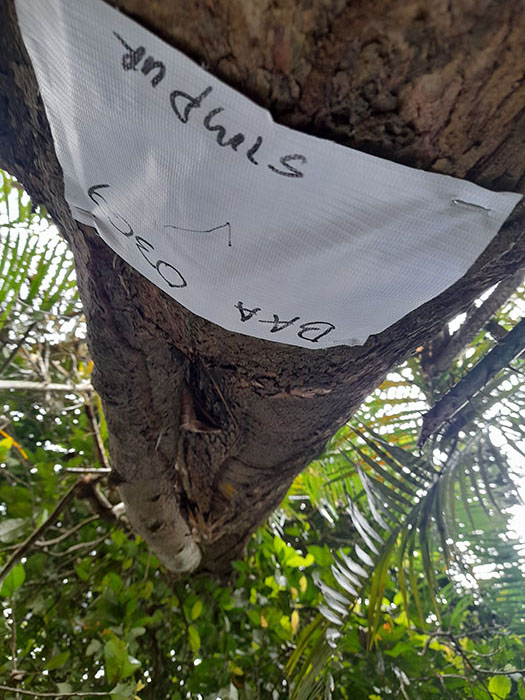 BAA 0309
SIMPUR